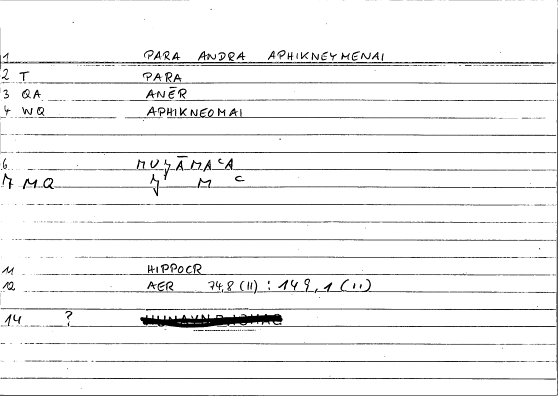 1 PARA ANDRA APHIKNEYMENAI
2 T PARA
3 QA ANĒR
4 WQ APHIKNEOMAI
6
7 MQ
11 HIPPOCR
12 AER 74,8 (II) : 149,1 (II)
14 ?